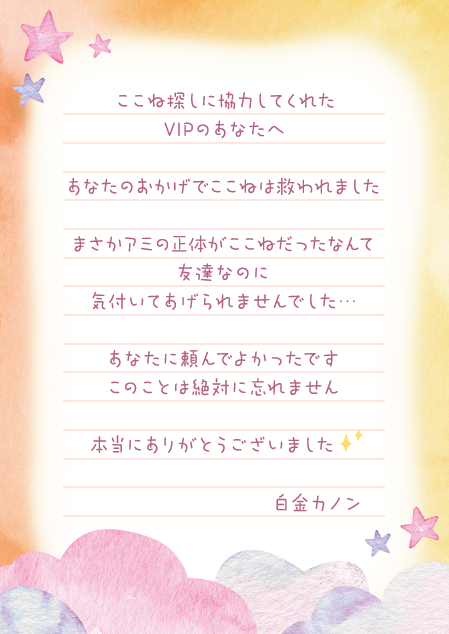 ここね探しに協力してくれた
VIPのあなたへ
あなたのおかげでここねは救われました
まさかアミの正体がここねだったなんて
友達なのに
気付いてあげられませんでした…
あなたに頼んでよかったです
このことは絶対に忘れません
本当にありがとうございました
白金カノン